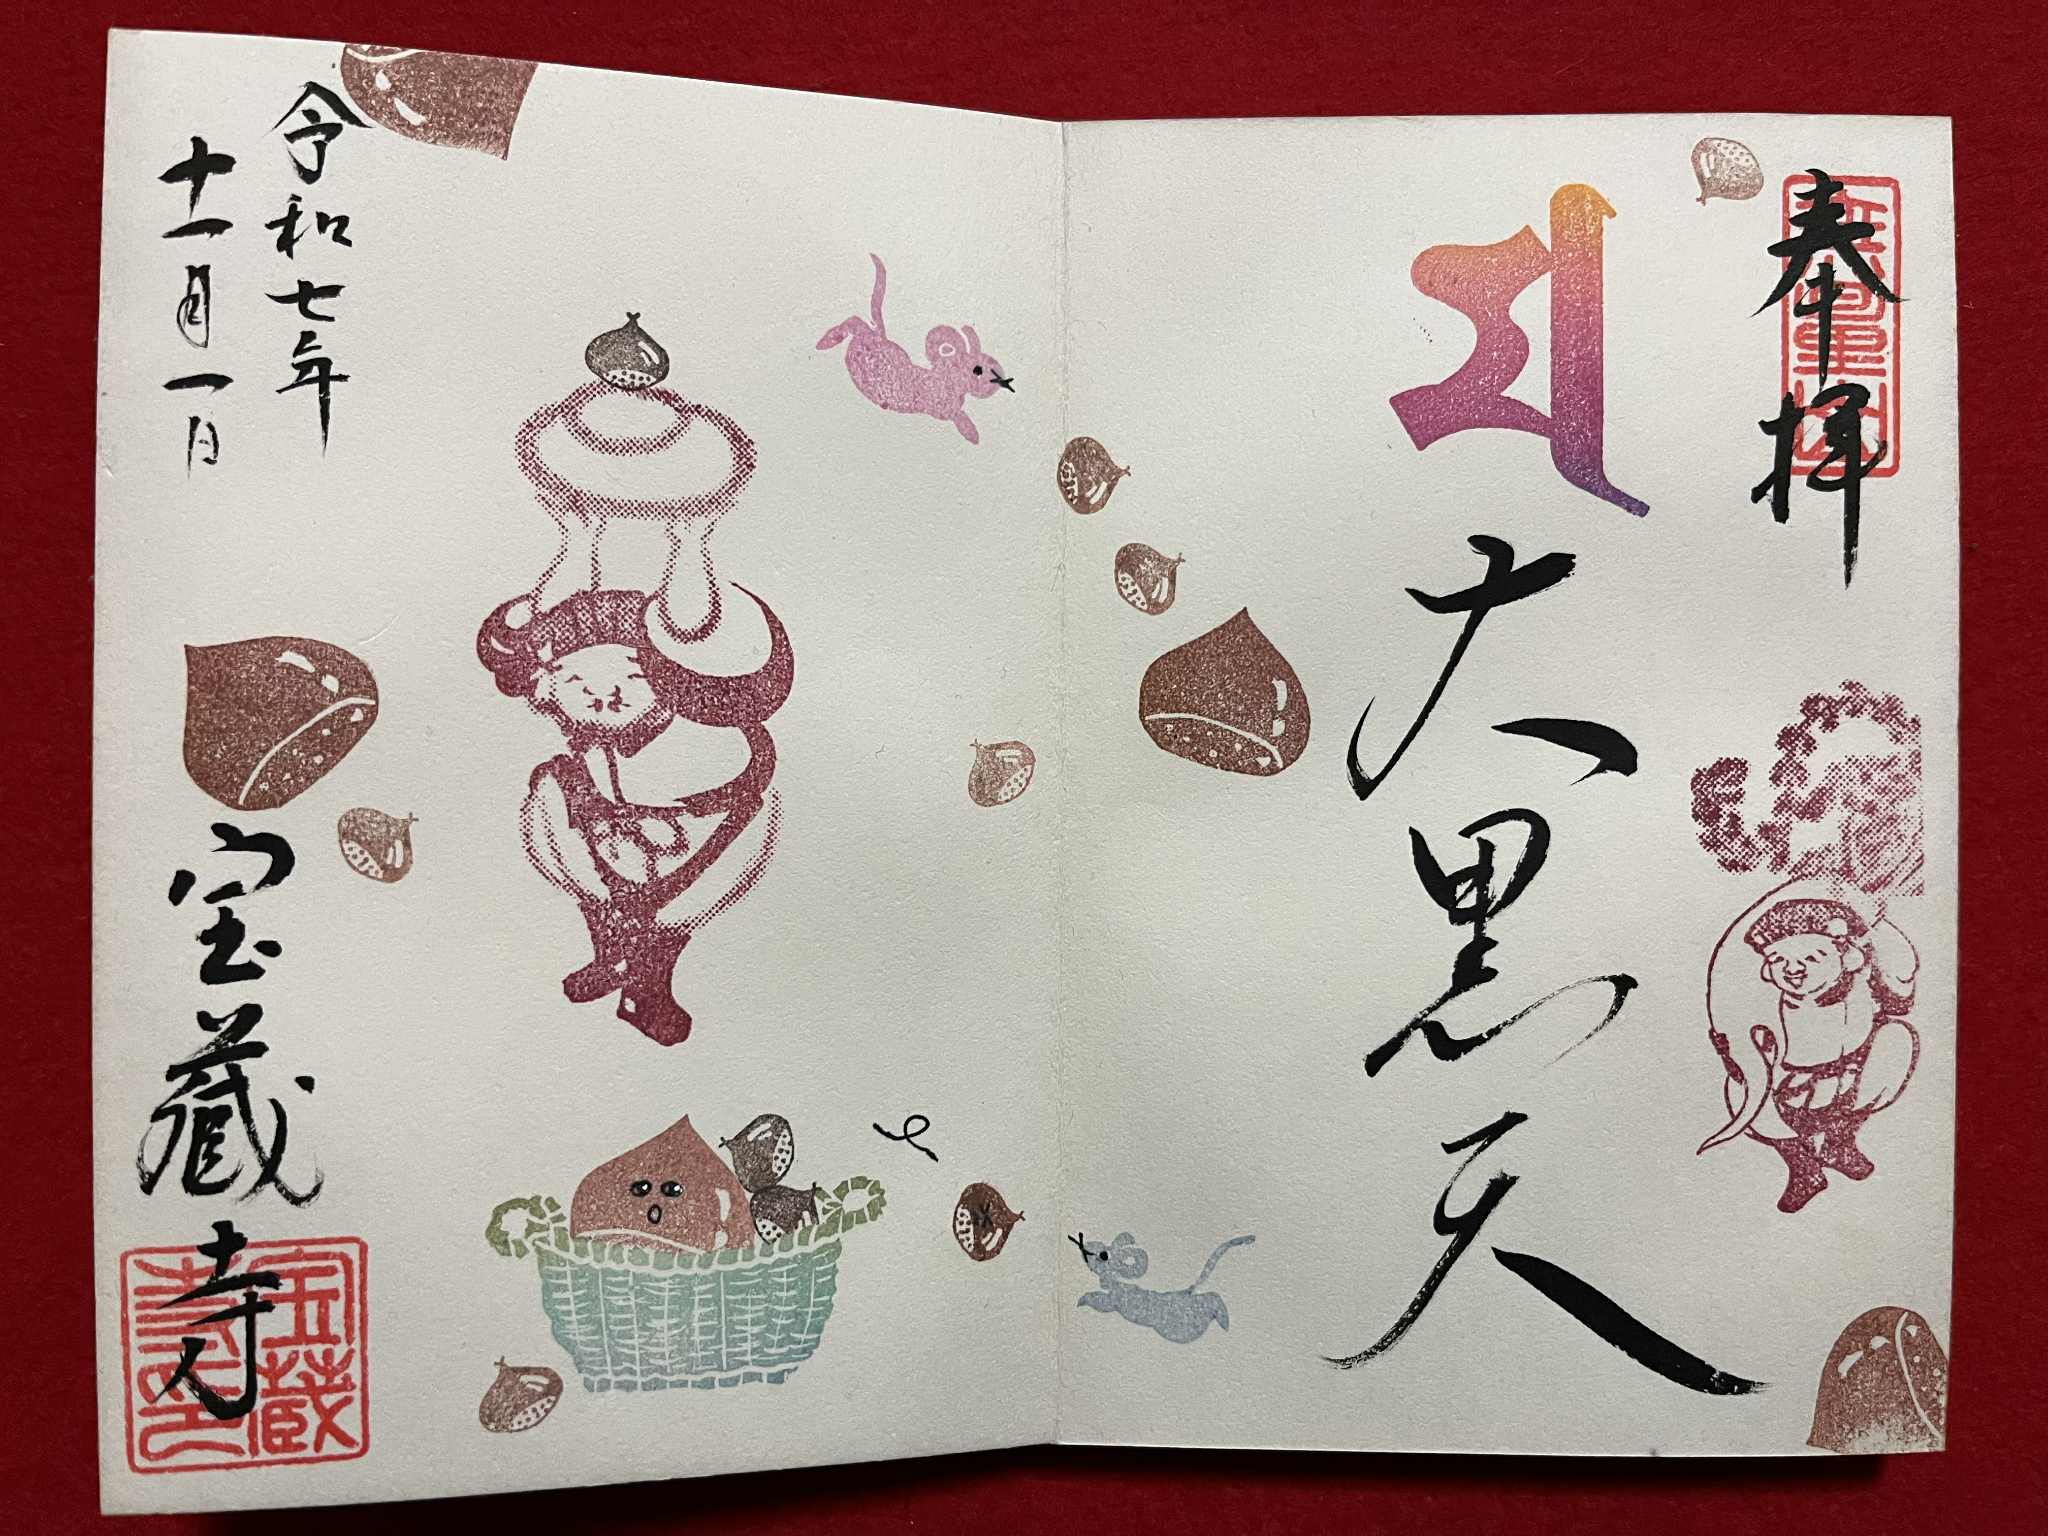 奉拝
म
大黒天
令和七年
十一月一日
宝蔵寺
宝蔵寺印